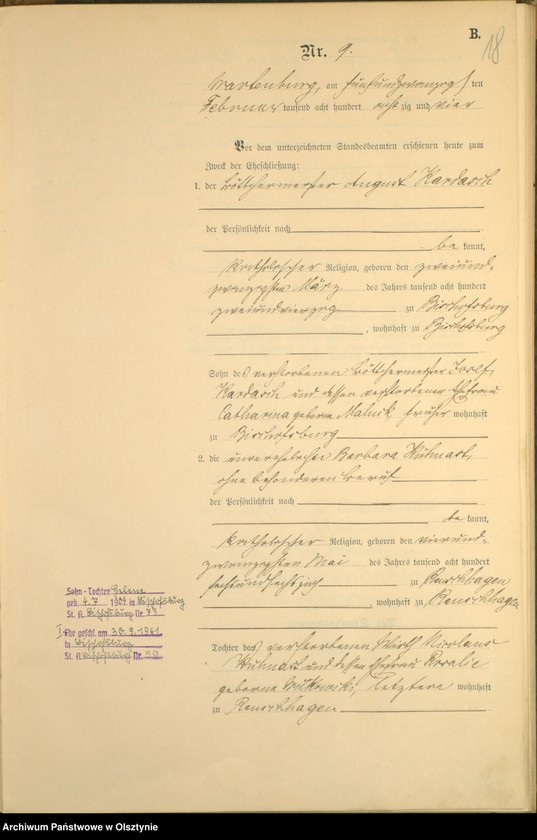 B.
18
Nr. 9.
Wartenburg, am fünfundzwanzigsten
Februar tausend acht hundert achtzig und vier
Vor dem unterzeichneten Standesbeamten erschienen heute zum
Zweck der Eheschließung:
1. der Böttchermeister August Kardasch
der Persönlichkeit nach
be kannt,
katholischer Religion, geboren den zweiund-
zwanzigsten März des Jahres tausend acht hundert
zweiundvierzig zu Bischofsburg
, wohnhaft zu Bischofsburg
Sohn des verstorbenen Böttchermeister Josef
Kardasch und dessen verstorbener Ehefrau
Catharina geborne Malnik früher wohnhaft
zu Bischofsburg
2. die unverehelichte Barbara Kuhnart,
ohne besonderen Beruf
der Persönlichkeit nach
be kannt,
katholischer Religion, geboren den vierund-
zwanzigsten Mai des Jahres tausend acht hundert
sechsundfünfzig zu Reuschhagen
, wohnhaft zu Reuschhagen
Tochter des verstorbenen Wirth Nicolaus
Kuhnart und dessen Ehefrau Rosalie
geborne Wilkowski, letztere wohnhaft
zu Reuschhagen
Sohn - Tochter Helene
geb. 4.7 1904 in Bischofsburg
St. A. Bischofsburg Nr.
I Ehe geschl. am 30.9.1941
in Bischofsburg
St. A. Bischofsburg Nr. 50
Archiwum Państwowe w Olsztynie